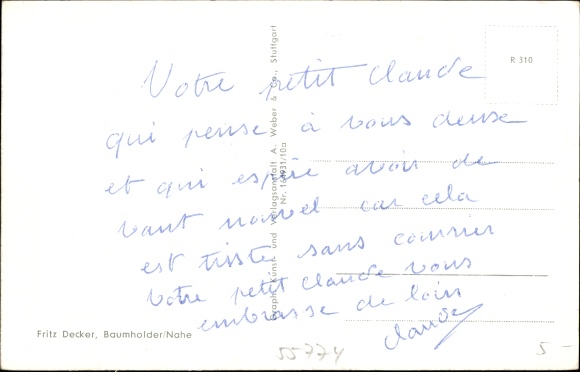 Votre petit Claude
qui pense à vous deuse
et qui espère avoir de
vant nouvel car cela
est tisste sans courrier
Votre petit Claude vous
embrasse de loin
Claude
R 310
Graph. Kunst- und Verlagsanstalt A. Weber & Co., Stuttgart
Nr. 164931/10a
Fritz Decker, Baumholder/Nahe
55774
5 -